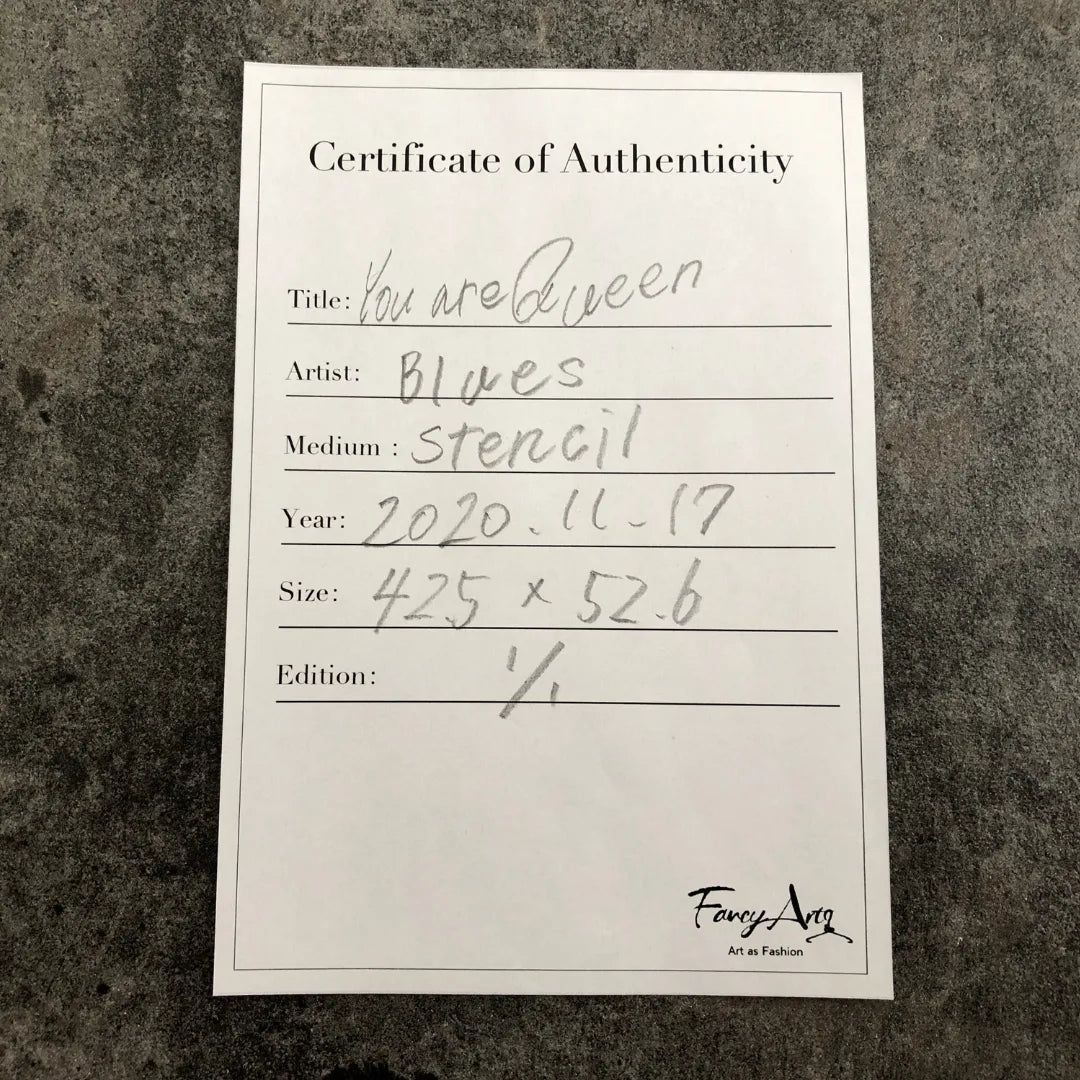 Certificate of Authenticity
Title: You are Queen
Artist: Blues
Medium : Stencil
Year: 2020.11-17
Size: 42.5 x 52.6
Edition: 1/1
Fancy Artq
Art as Fashion